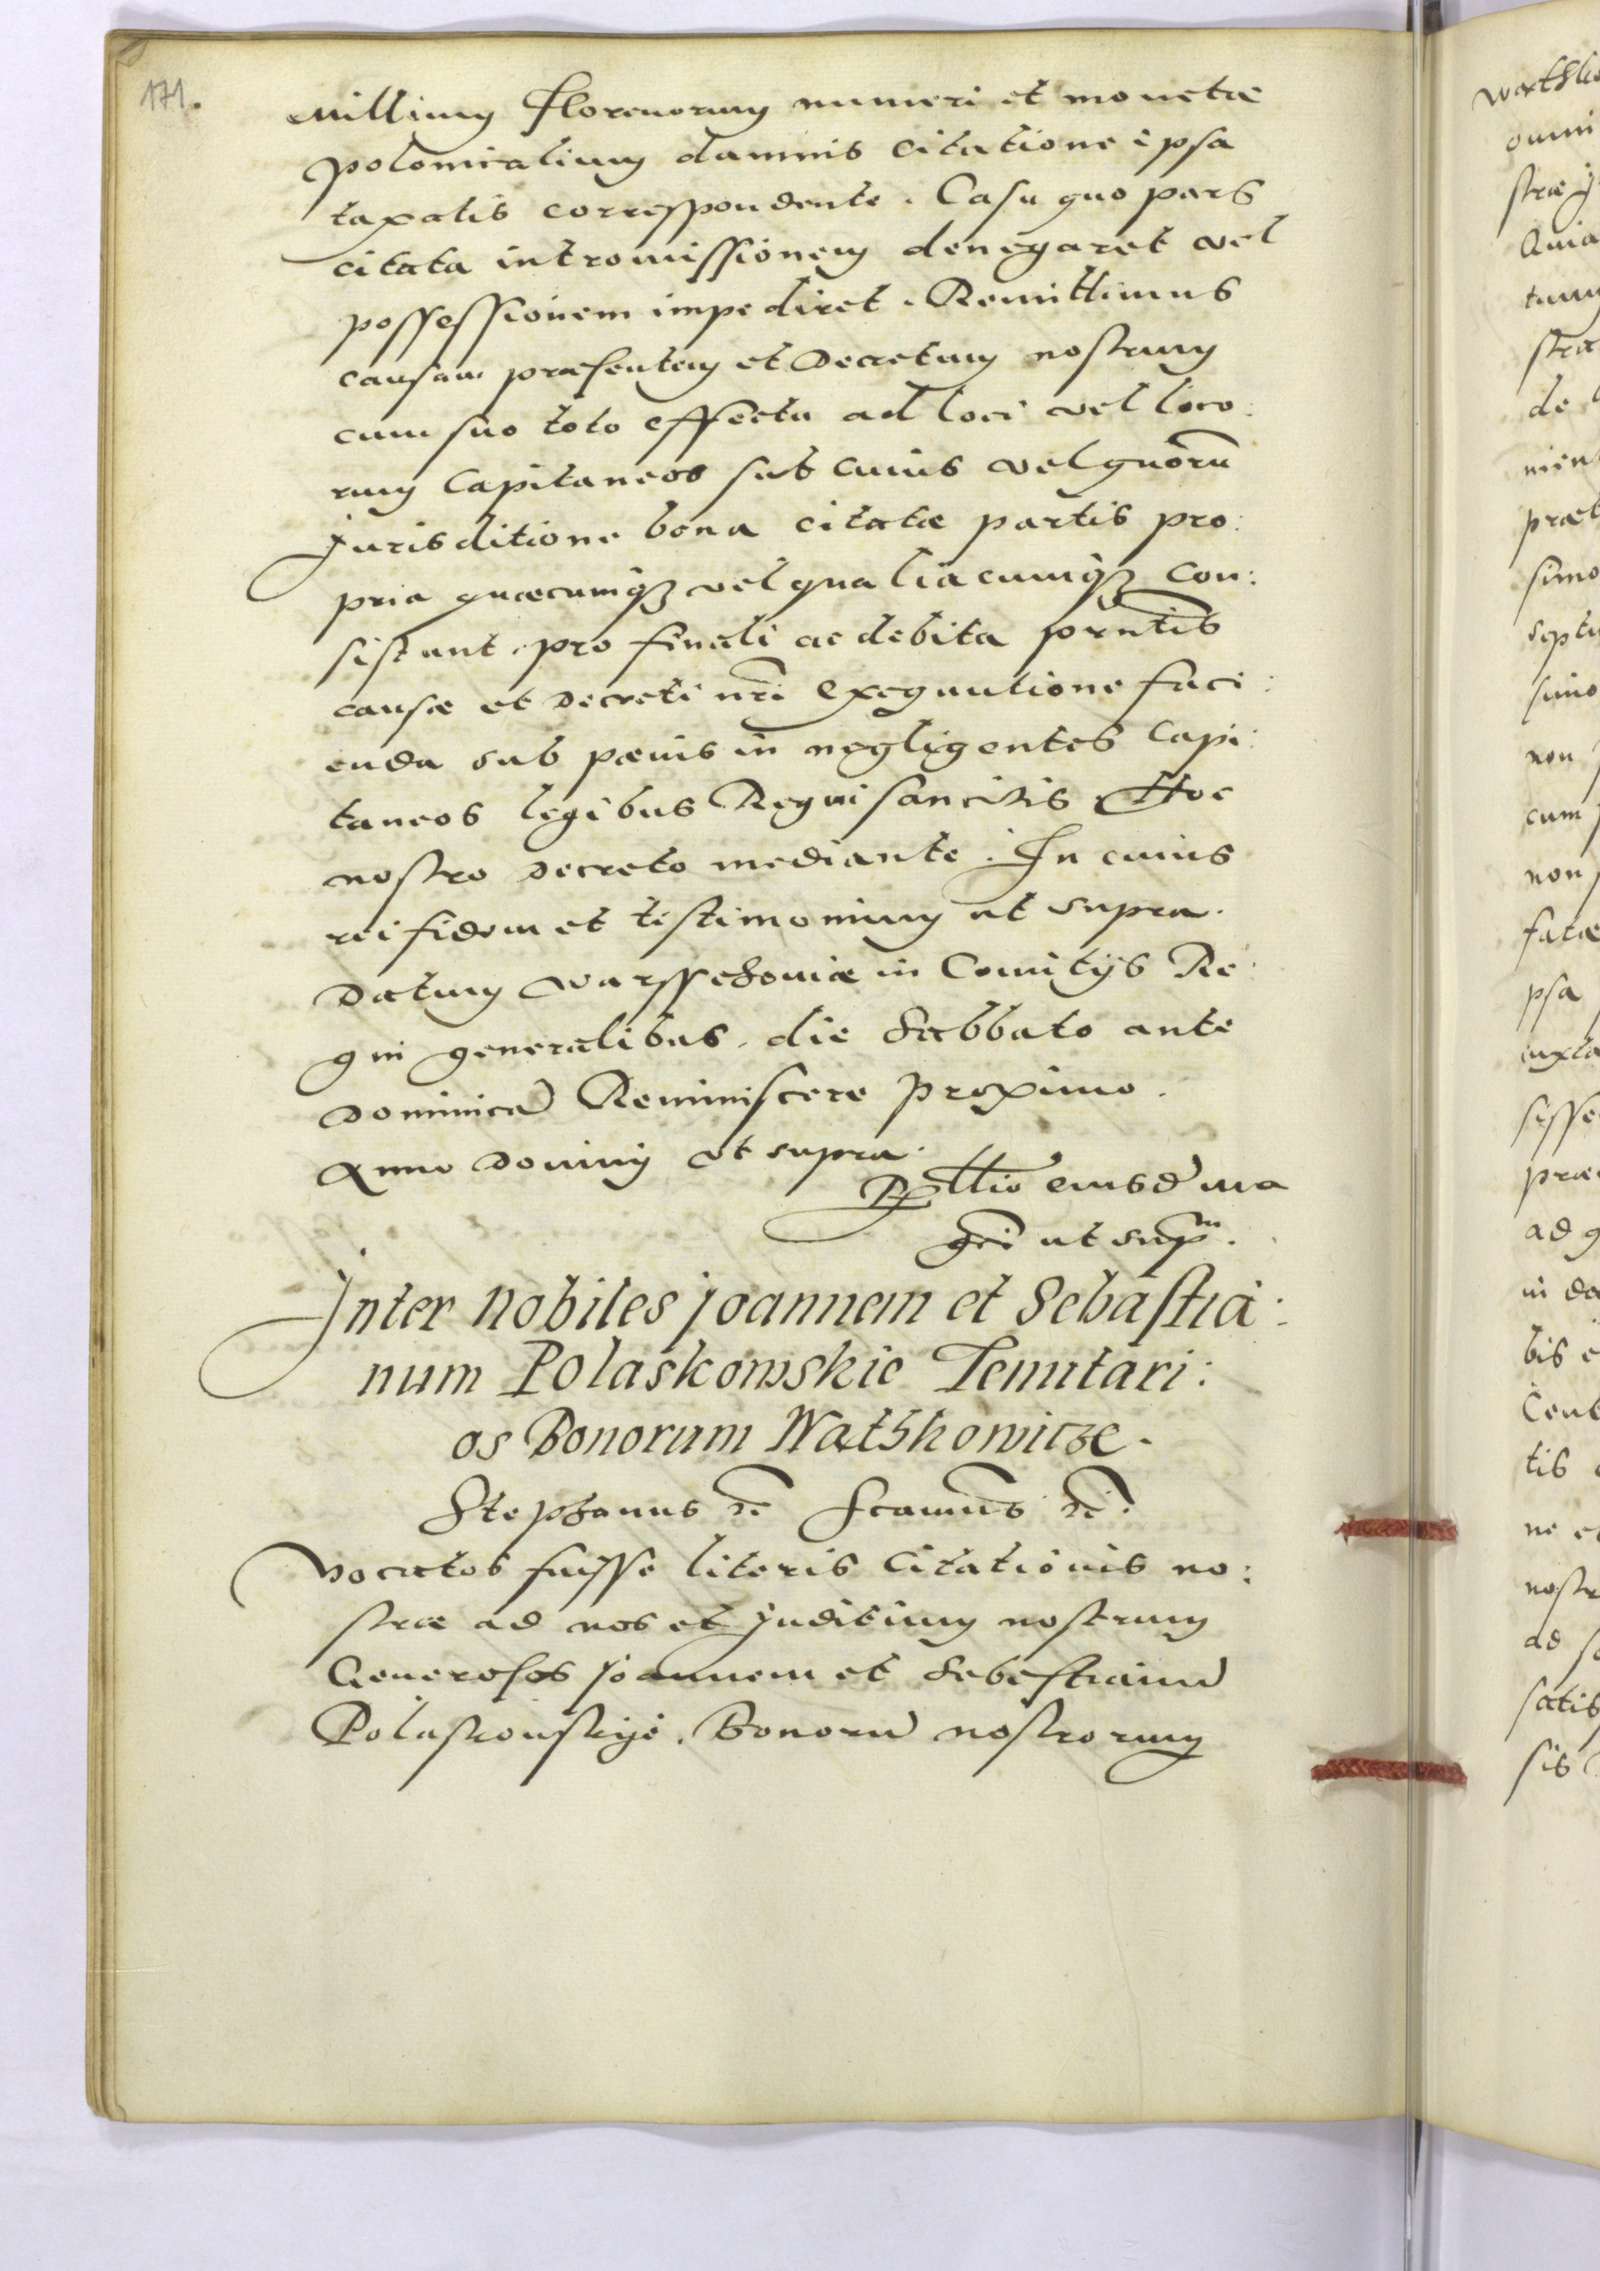 171.
Millium florenorum numeri et monetae
polonicalium damnis citatione ipsa
taxatis correspondente. Casu quo pars
citata intromissionem denegaret vel
possessionem impediret. Remittimus
causam praesentem et Decretum nostrum
cum suo toto effectu ad loci vel loco:
rum Capitaneos sub cuius vel quorū
Jurisditione bona citatae partis pro:
pria quaecumqꝫ vel qualiacumqꝫ con:
sistunt, pro finali ac debita prntis
causae et Decreti nri exequutione faci:
enda sub paenis in negligentes Capi:
taneos legibus Regni sancitis Hoc
nostro Decreto mediante. In cuius
rei fidem et testimonium ut supra.
Datum Warsschoviae in Comitijs Re:
gni generalibus, die Sabbato ante
Dominicā Reminiscere proximo.
Anno Domini ut supra.
Rltio eiusdē ma
gci ut supra.
Inter Nobiles Joannem et Sebastia:
num Polaskowskie Tenutari:
os Bonorum Watshowicze.
Stephanus rc
Vocatos fuisse literis Citationis no:
strae ad nos et Juditium nostrum
Generosos Joannem et Sebestianū
Polaskouskye, Bonorū nostrorum